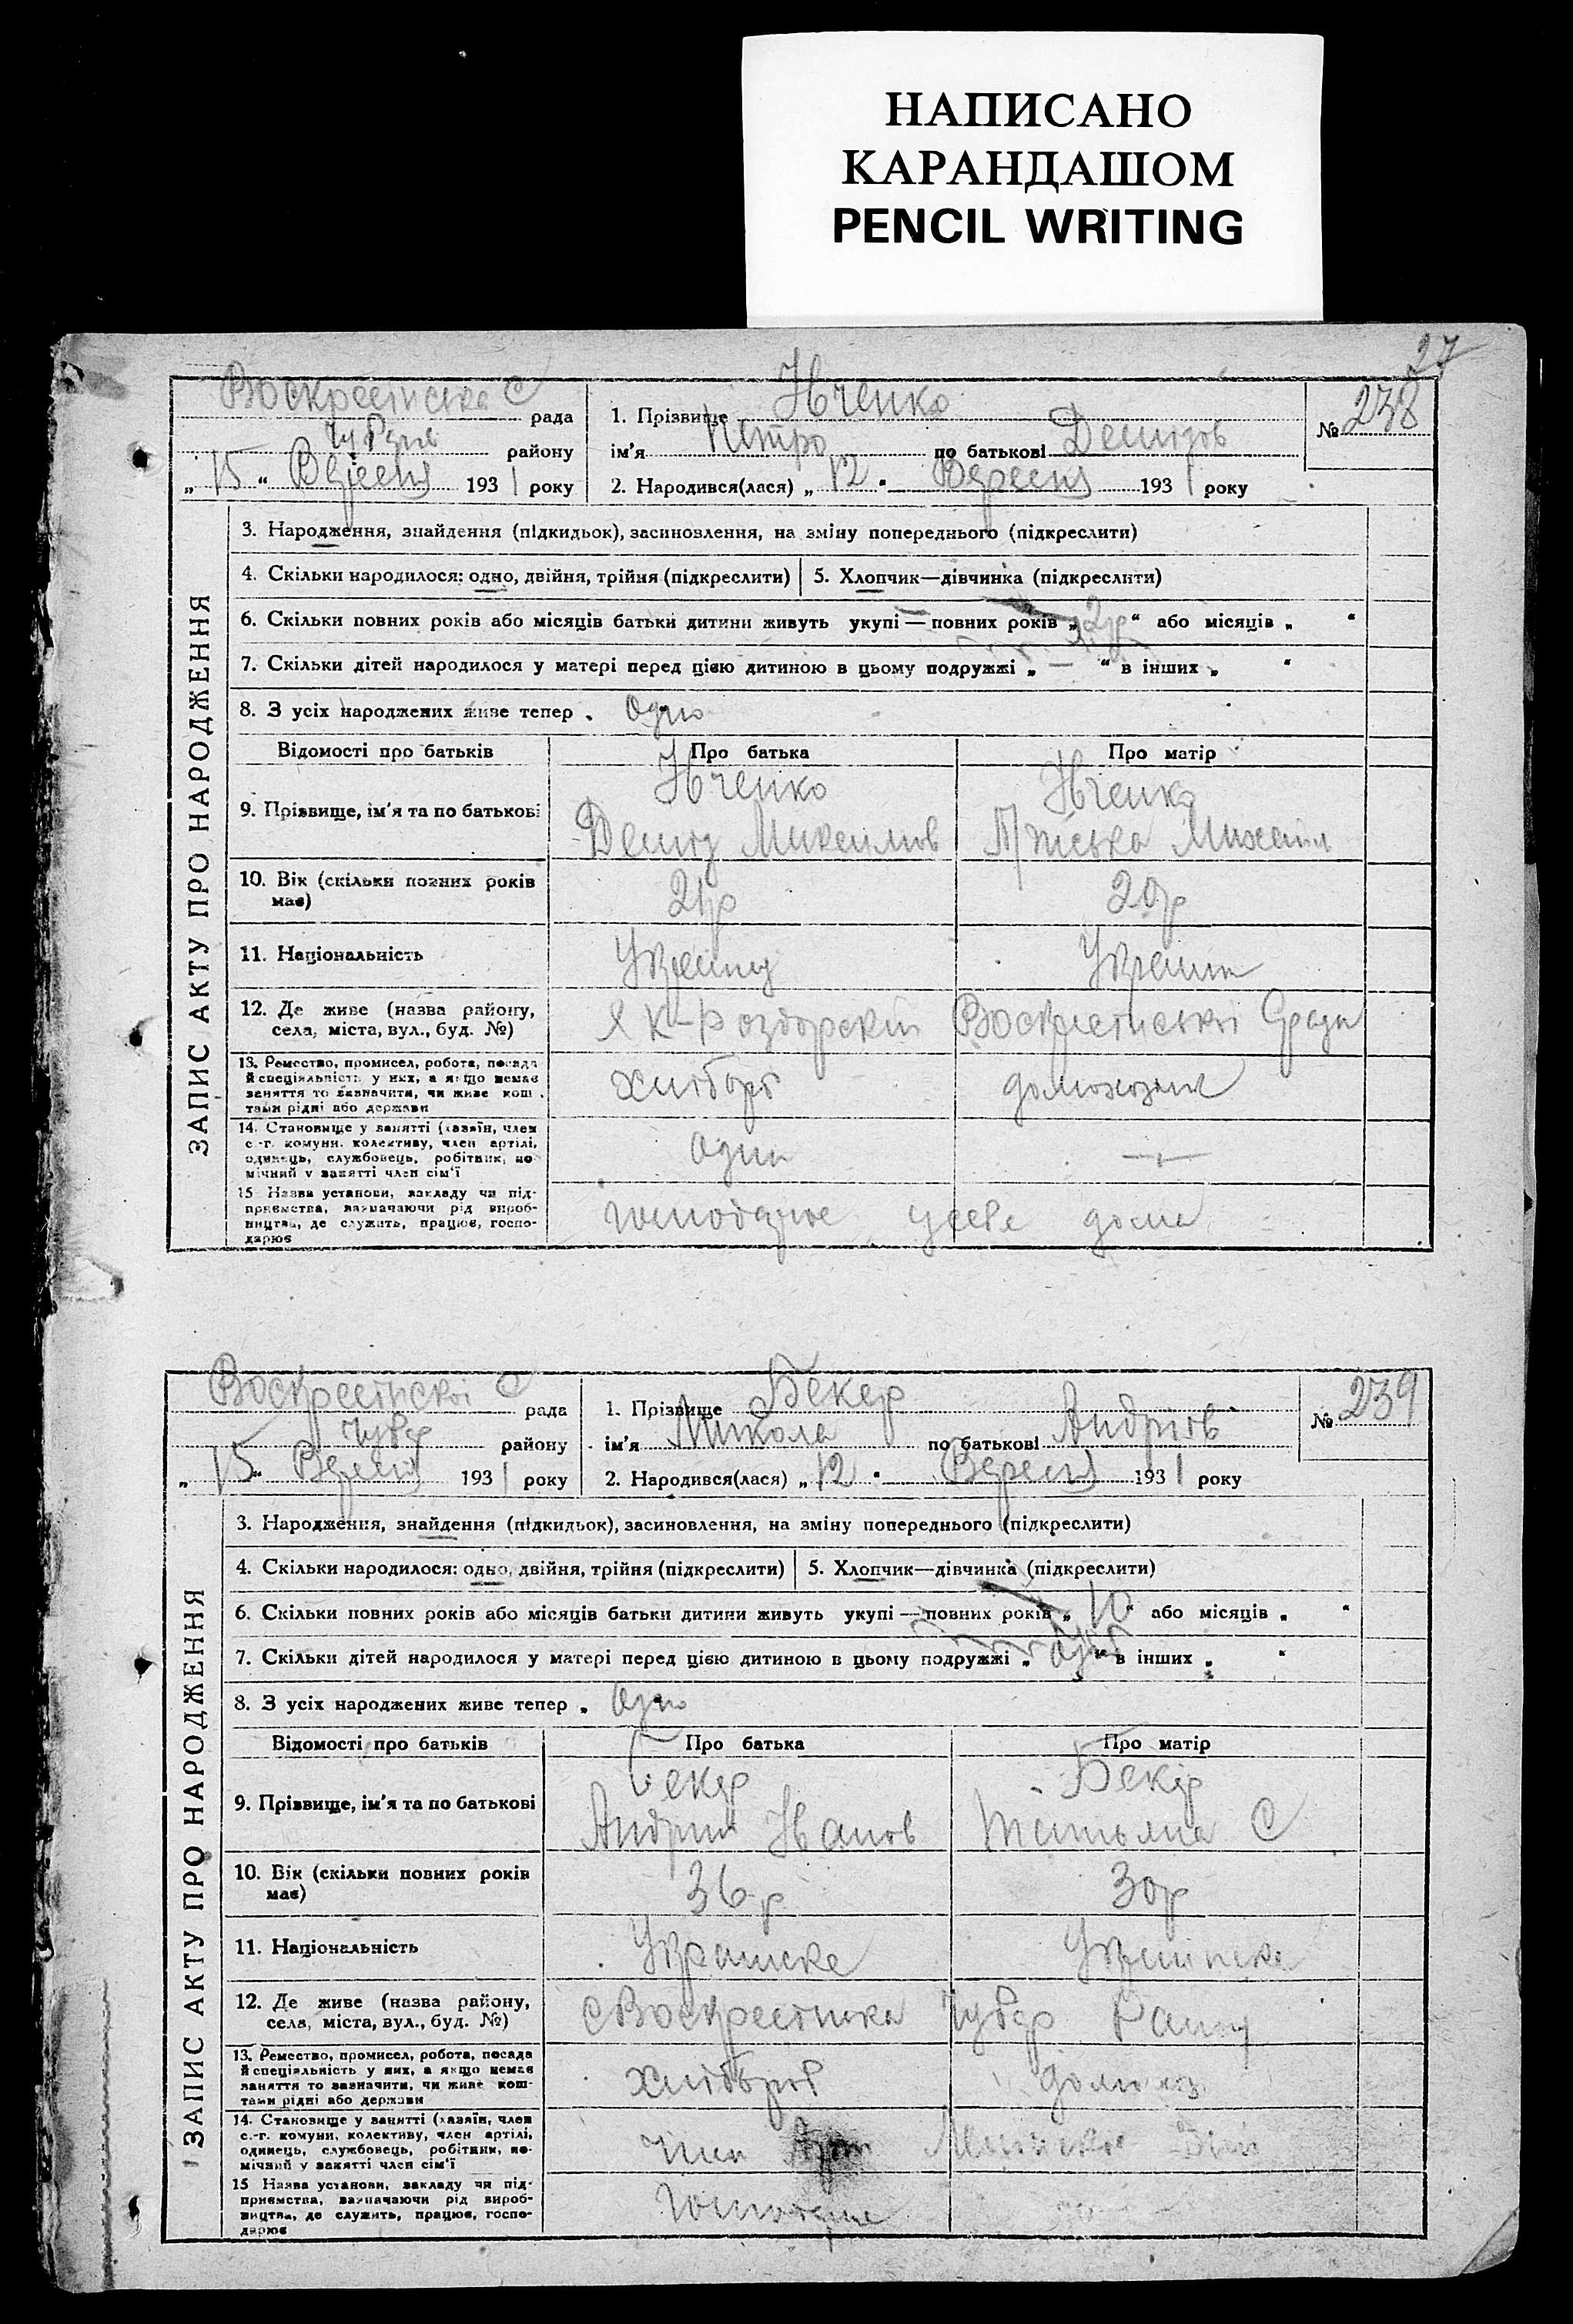 НАПИСАНО
КАРАНДАШОМ
PENCIL WRITING
27
Воскресенська С рада
району
„ 15 “ Вересня 1931 року
1. Прізвище Івченко
ім'я Петро по батькові Демидов
2. Народився(лася) „ 12 " Вересня 1931 року
№ 238
ЗАПИС АКТУ ПРО НАРОДЖЕННЯ
3. Народження, знайдення (підкидьок), засиновлення, на зміну попереднього (підкреслити)
4. Скільки народилося: одно, двійня, трійня (підкреслити) 5. Хлопчик—дівчинка (підкреслити)
6. Скільки повних років або місяців батьки дитини живуть укупі — повних років „ 2р “ або місяців „ “
7. Скільки дітей народилося у матері перед цією дитиною в цьому подружжі „ — “ в інших „ “
8. З усіх народжених живе тепер . Одно
Відомості про батьків Про батька Про матір
9. Прізвище, ім'я та по батькові
Івченко Івченко
Демид Максимов Михайл
10. Вік (скільки повних років має) 21р 20р
11. Національність Украінц Украінк
12. Де живе (назва району, села, міста, вул., буд. №) Воскресенської Сради
13. Ремество, промисел, робота, посада
й спеціяльність у них, а якщо немає
заняття то зазначити, чи живе кош-
тами рідні або держави
Хлібороб домохозяйк
14. Становище у занятті (хазяїн, член
с.-г. комуни, колективу, член артілі,
одинець, службовець, робітник, по-
мічний у занятті член сім'ї
Один —
15 Назва установи, закладу чи під-
приємства, зазначаючи рід вироб-
ництва, де служить, працює, госпо-
дарює
господарює у себе дома
Воскресенської С рада
Чубар району
„ 15 “ Вересня 1931 року
1. Прізвище Бекер
ім'я Микола по батькові Андріїв
2. Народився(лася) „ 12 " Вересня 1931 року
№ 239
ЗАПИС АКТУ ПРО НАРОДЖЕННЯ
3. Народження, знайдення (підкидьок), засиновлення, на зміну попереднього (підкреслити)
4. Скільки народилося: одно, двійня, трійня (підкреслити) 5. Хлопчик—дівчинка (підкреслити)
6. Скільки повних років або місяців батьки дитини живуть укупі — повних років „ 10 “ або місяців „ “
7. Скільки дітей народилося у матері перед цією дитиною в цьому подружжі „ “ в інших „ “
8. З усіх народжених живе тепер „ Одно
Відомості про батьків Про батька Про матір
9. Прізвище, ім'я та по батькові
Бекер Бекер
Андрий Іванов Татьяна С
10. Вік (скільки повних років має) 36р 30р
11. Національність Украінска Украінска
12. Де живе (назва району, села, міста, вул., буд. №) с Воскресенка Чубар Район
13. Ремество, промисел, робота, посада
й спеціяльність у них, а якщо немає
заняття то зазначити, чи живе кош-
тами рідні або держави
Хлібороб домохоз
14. Становище у занятті (хазяїн, член
с.-г. комуни, колективу, член артілі,
одинець, службовець, робітник, по-
мічний у занятті член сім'ї
член
15 Назва установи, закладу чи під-
приємства, зазначаючи рід вироб-
ництва, де служить, працює, госпо-
дарює
господарює